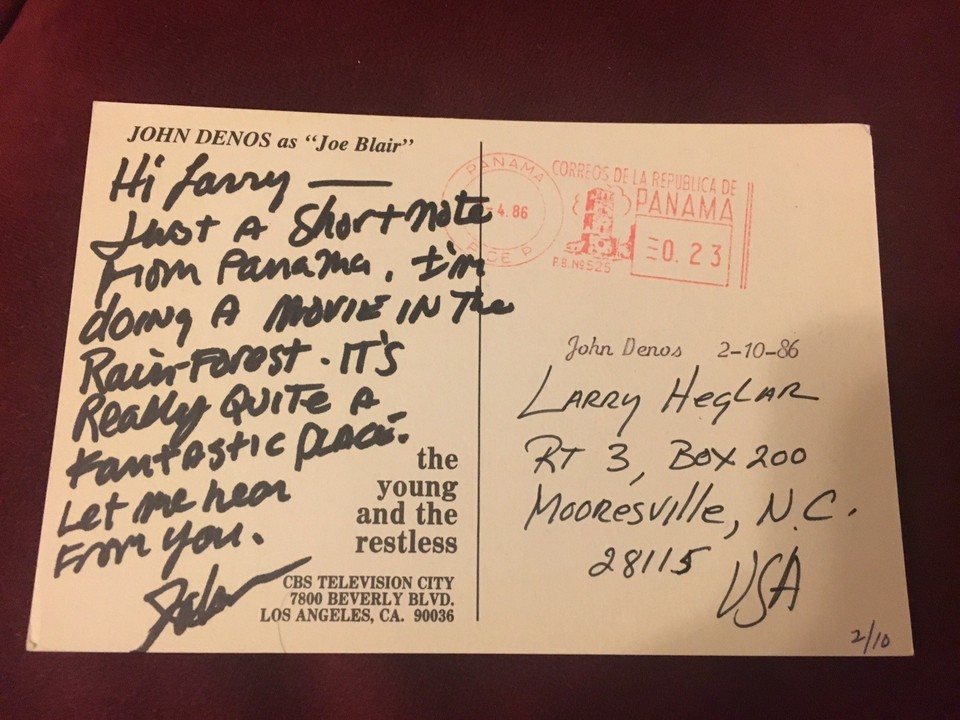 JOHN DENOS as "Joe Blair"
Hi Larry —
Just A Short note
From Panama. I'm
doing A MOVIE IN The
Rain-Forest. IT'S
Really QUITE A
Fantastic place.
Let me hear
From you.
John
the
young
and the
restless
CBS TELEVISION CITY
7800 BEVERLY BLVD.
LOS ANGELES, CA. 90036
PANAMA
4.86
CORREOS DE LA REPUBLICA DE
PANAMA
0.23
P.B. Nº 525
John Denos 2-10-86
LARRY HEGLAR
RT 3, BOX 200
MOORESVILLE, N.C.
28115
USA
2/10